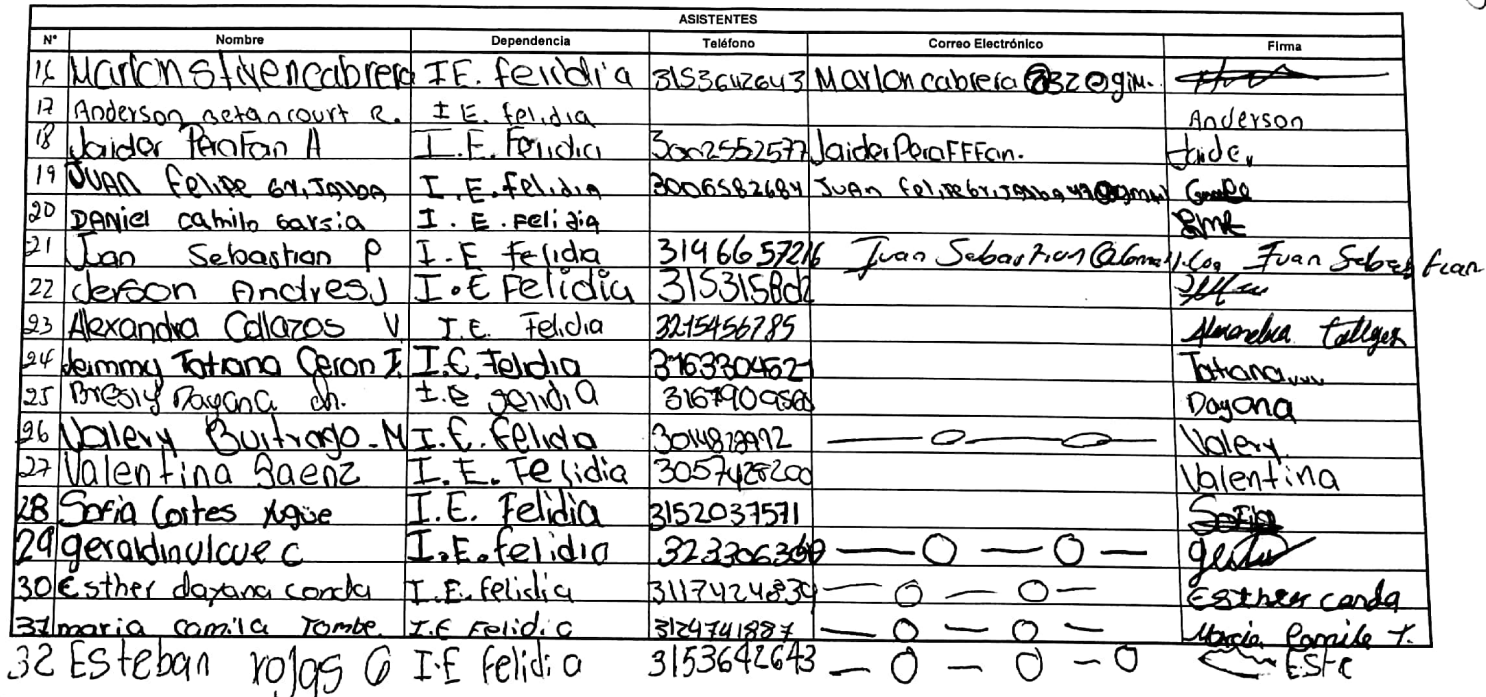 ASISTENTES
N° Nombre Dependencia Teléfono Correo Electrónico Firma
16 Marlon Stiven cabrera I E. felidia 3153642643 Marlon cabrera
17 Anderson Betancourt R. I E. felidia Anderson
18 Jaider Perafan A I.E. Felidia 3002552577 JaiderPeraFFFan. Jaider
19 JUAN Felipe I.E. felidia 3006582684
20 DANiel camilo Garsia I.E. Felidia
21 Juan Sebastian P I.E felidia 3146657216 Juan Sebastian Juan Sebastian
22 Jerson Andres J I.E Felidia
23 Alexandra Collazos V I.E. Felidia 3215456785 Alexandra
24 Jeimmy Tatiana Ceron I.E. Felidia Tatiana
25 Dayana ch. I.e Dayana
26 Valery Buitrago. M I.E. felidia Valery
27 Valentina Saenz I.E. Felidia Valentina
28 Sofia Cortes I.E. Felidia 3152037571 Sofia
29 I.E. felidia
30 Esther dayana conda I.E. felidia 3117424839 Esther conda
31 maria camila Tombe. I.E Felidia 3124741887 Maria Camila T.
32 Esteban rojas G I.E felidia 3153642643 ESte